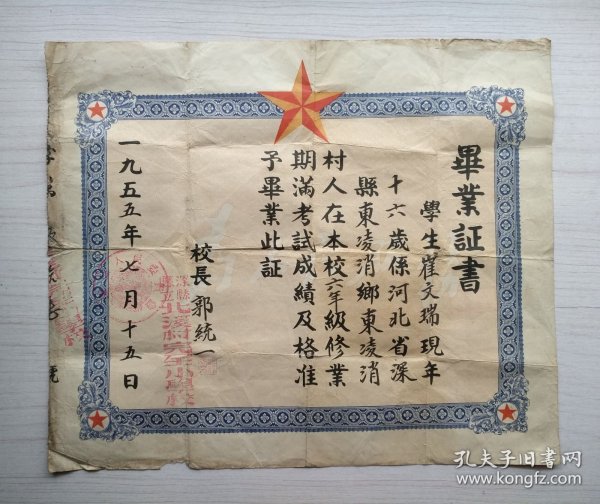 畢業証書
學生崔文瑞現年
十六歲係河北省深
縣東凌消鄉東凌消
村人在本校六年級修業
期滿考試成績及格准
予畢業此証
校長郭統一
一九五五年七月十五日
號
孔夫子旧书网
www.kongfz.com